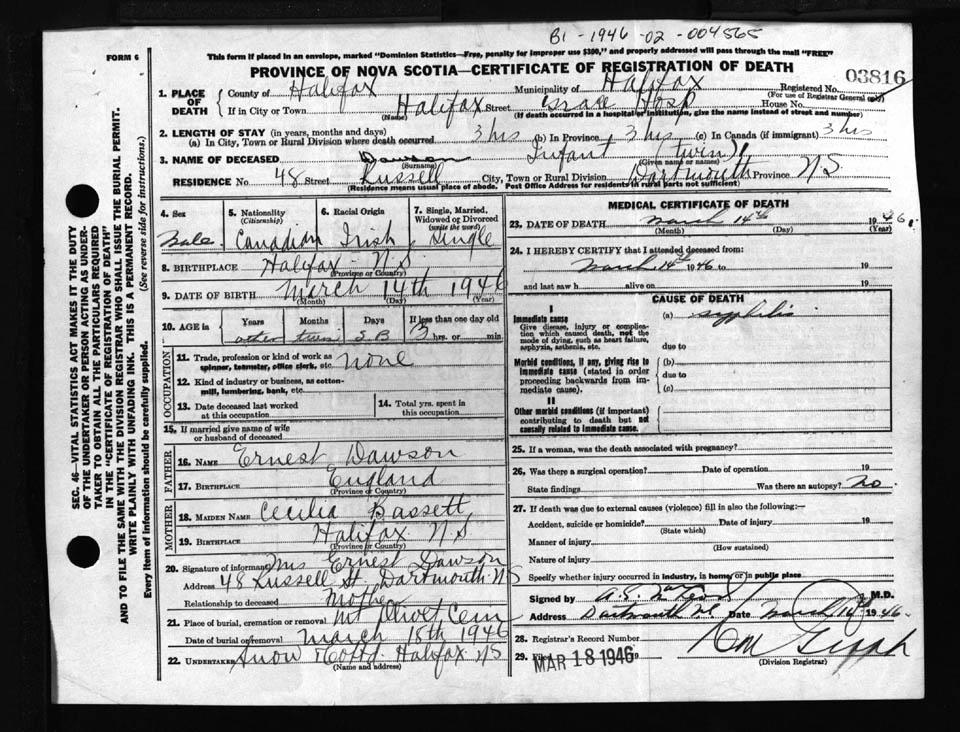 B1-1946-02-004565
FORM 6
This form if placed in an envelope, marked "Dominion Statistics—Free, penalty for improper use $300," and properly addressed will pass through the mail "FREE"
PROVINCE OF NOVA SCOTIA—CERTIFICATE OF REGISTRATION OF DEATH
03816
1. PLACE OF DEATH
County of Halifax Municipality of Halifax Registered No.
(For use of Registrar General only)
If in City or Town Halifax Street Grace Hosp House No.
(Name) (If death occurred in a hospital or institution, give the name instead of street and number)
2. LENGTH OF STAY (in years, months and days)
(a) In City, Town or Rural Division where death occurred 3 hrs (b) In Province 3 hrs (c) In Canada (if immigrant) 3 hrs
3. NAME OF DECEASED Dawson Infant (twin)
(Surname) (Given name or names)
RESIDENCE No 48 Street Russell City, Town or Rural Division Dartmouth Province N S
(Residence means usual place of abode. Post Office Address for residents in rural parts not sufficient)
4. Sex
Male
5. Nationality
(Citizenship)
Canadian
6. Racial Origin
Irish
7. Single, Married, Widowed or Divorced
(write the word)
Single
8. BIRTHPLACE Halifax N.S
(Province or Country)
9. DATE OF BIRTH March 14th 1946
(Month) (Day) (Year)
10. AGE in Years Months Days If less than one day old
other twin S.B 3 hrs. or min.
OCCUPATION
11. Trade, profession or kind of work as spinner, teamster, office clerk, etc. none
12. Kind of industry or business, as cotton-mill, lumbering, bank, etc.
13. Date deceased last worked at this occupation
14. Total yrs. spent in this occupation
15. If married give name of wife or husband of deceased
FATHER
16. NAME Ernest Dawson
17. BIRTHPLACE England
(Province or Country)
MOTHER
18. MAIDEN NAME Cecilia Bassett
19. BIRTHPLACE Halifax N.S
(Province or Country)
20. Signature of informant Mrs Ernest Dawson
Address 48 Russell St. Dartmouth NS
Relationship to deceased Mother
21. Place of burial, cremation or removal Mt Olivet Cem
Date of burial or removal March 18th 1946
22. Undertaker Snow & Co Ltd. Halifax NS
(Name and address)
MEDICAL CERTIFICATE OF DEATH
23. DATE OF DEATH March 14th 1946
(Month) (Day) (Year)
24. I HEREBY CERTIFY that I attended deceased from:
March 14th 1946 to 19
and last saw h alive on 19
CAUSE OF DEATH
I
Immediate cause
Give disease, injury or complication which caused death, not the mode of dying, such as heart failure, asphyxia, asthenia, etc.
(a) syphilis
due to
Morbid conditions, if any, giving rise to immediate cause (stated in order proceeding backwards from immediate cause).
(b)
due to
(c)
II
Other morbid conditions (if important) contributing to death but not causally related to immediate cause.
25. If a woman, was the death associated with pregnancy?
26. Was there a surgical operation? Date of operation 19
State findings Was there an autopsy? no
27. If death was due to external causes (violence) fill in also the following:—
Accident, suicide or homicide? Date of injury 19
(State which)
Manner of injury
(How sustained)
Nature of injury
Specify whether injury occurred in industry, in home, or in public place
Signed by A.S. M.D.
Address Dartmouth N.S. Date March 14th 1946
28. Registrar's Record Number
29. Filed MAR 18 1946 19
(Division Registrar)
SEC. 46—VITAL STATISTICS ACT MAKES IT THE DUTY
OF THE UNDERTAKER OR PERSON ACTING AS UNDER-
TAKER TO OBTAIN ALL THE PARTICULARS REQUIRED
IN THE "CERTIFICATE OF REGISTRATION OF DEATH"
AND TO FILE THE SAME WITH THE DIVISION REGISTRAR WHO SHALL ISSUE THE BURIAL PERMIT.
WRITE PLAINLY WITH UNFADING INK. THIS IS A PERMANENT RECORD.
Every item of information should be carefully supplied. (See reverse side for instructions.)